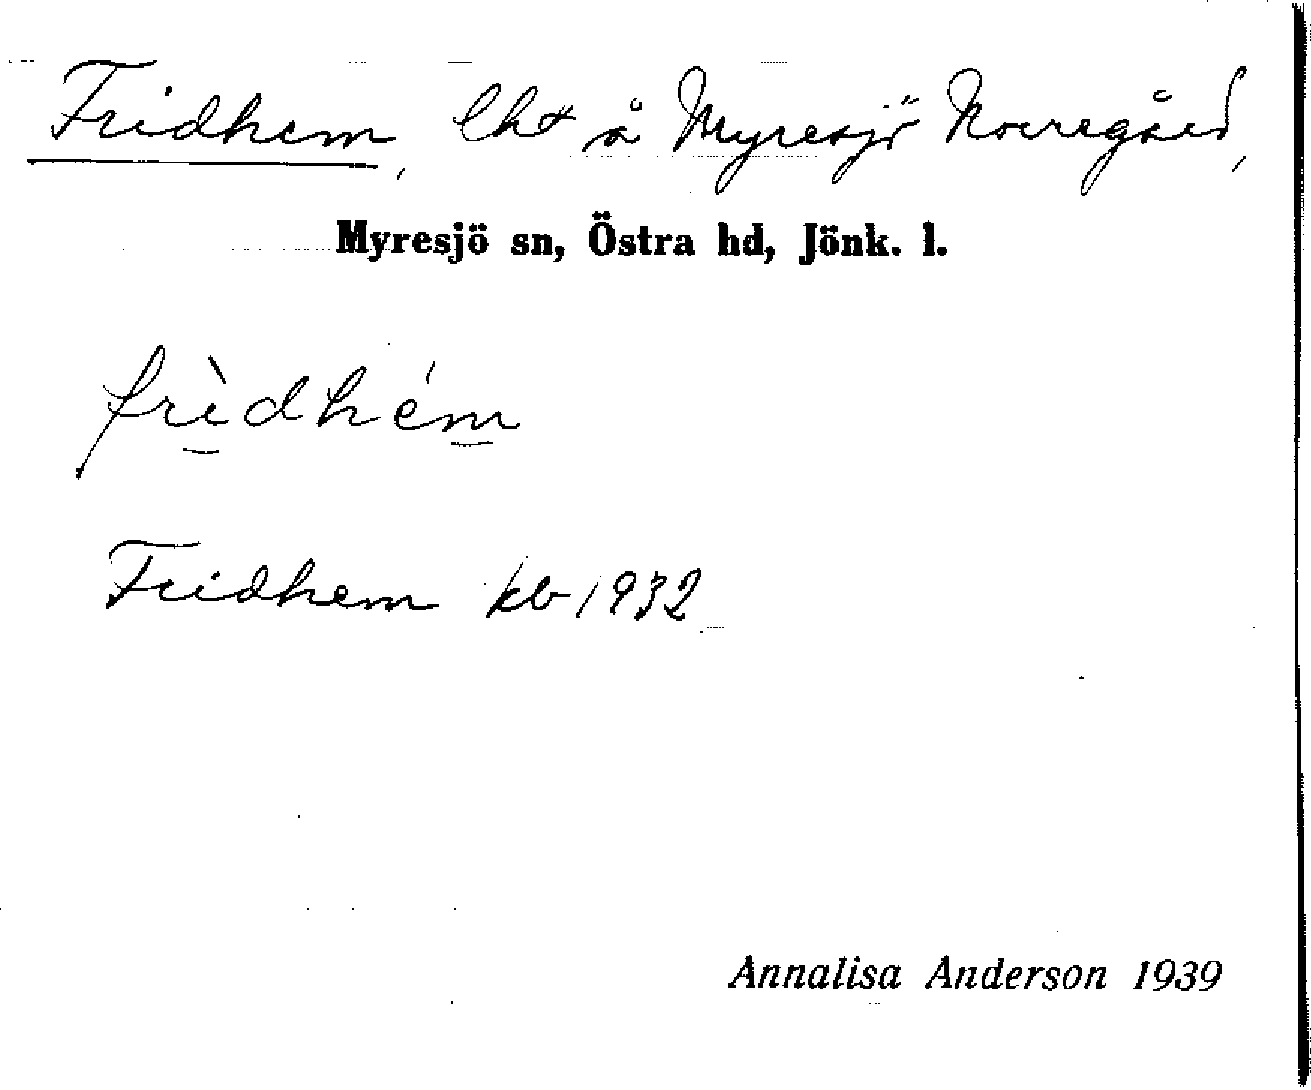 Fridhem, lht å Myresjö Norregård,
Myresjö sn, Östra hd, Jönk. l.
frìdhém
Fridhem kb 1932
Annalisa Anderson 1939